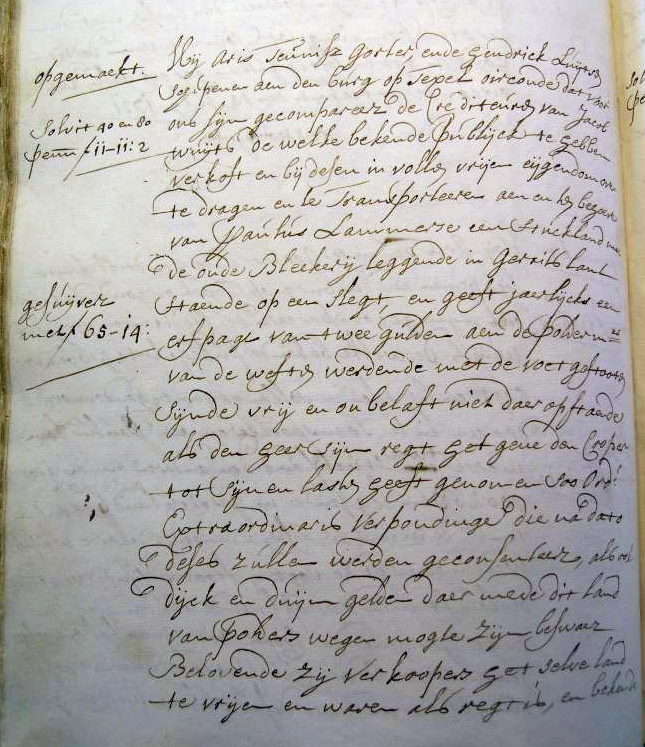 opgemaekt.
Solvit 40 en 80
penn f 11-11:2
gesuijvert
met f 65-14:
Wij Aris Teunisz Gorter, ende Hendrick Luijtsz
Schepenen aen den burg op Texel oirconde dat voor
ons sijn gecompareert de Crediteuren van Jacob
de welke bekende Publijck te hebben
verkoft en bij desen in vollen vrijen eijgendom over
te dragen en te Transporteeren aen en ten behoeve
van Paulus Lammerse een stuck land
de oude Bleekerij leggende in Gerrits lant
staende op een slegt, en geeft jaerlijcks een
erfpagt van twee gulden aen de polderm:rs
van de westen werdende met de voet gestooten
sijnde vrij en onbelast niet daer op staende
als den Heer sijn regt het gene den Coper
tot sijnen laste heeft genomen soo Ord:
Extraordinaris verpondinge die na dato
deses zullen werden geconsenteert, als ook
dijck en duijn gelden daer mede dit land
van polders wegen mogte zijn beswaert
Belovende zij verkoopers het selve land
te vrijen en waren als regt is, en bekende